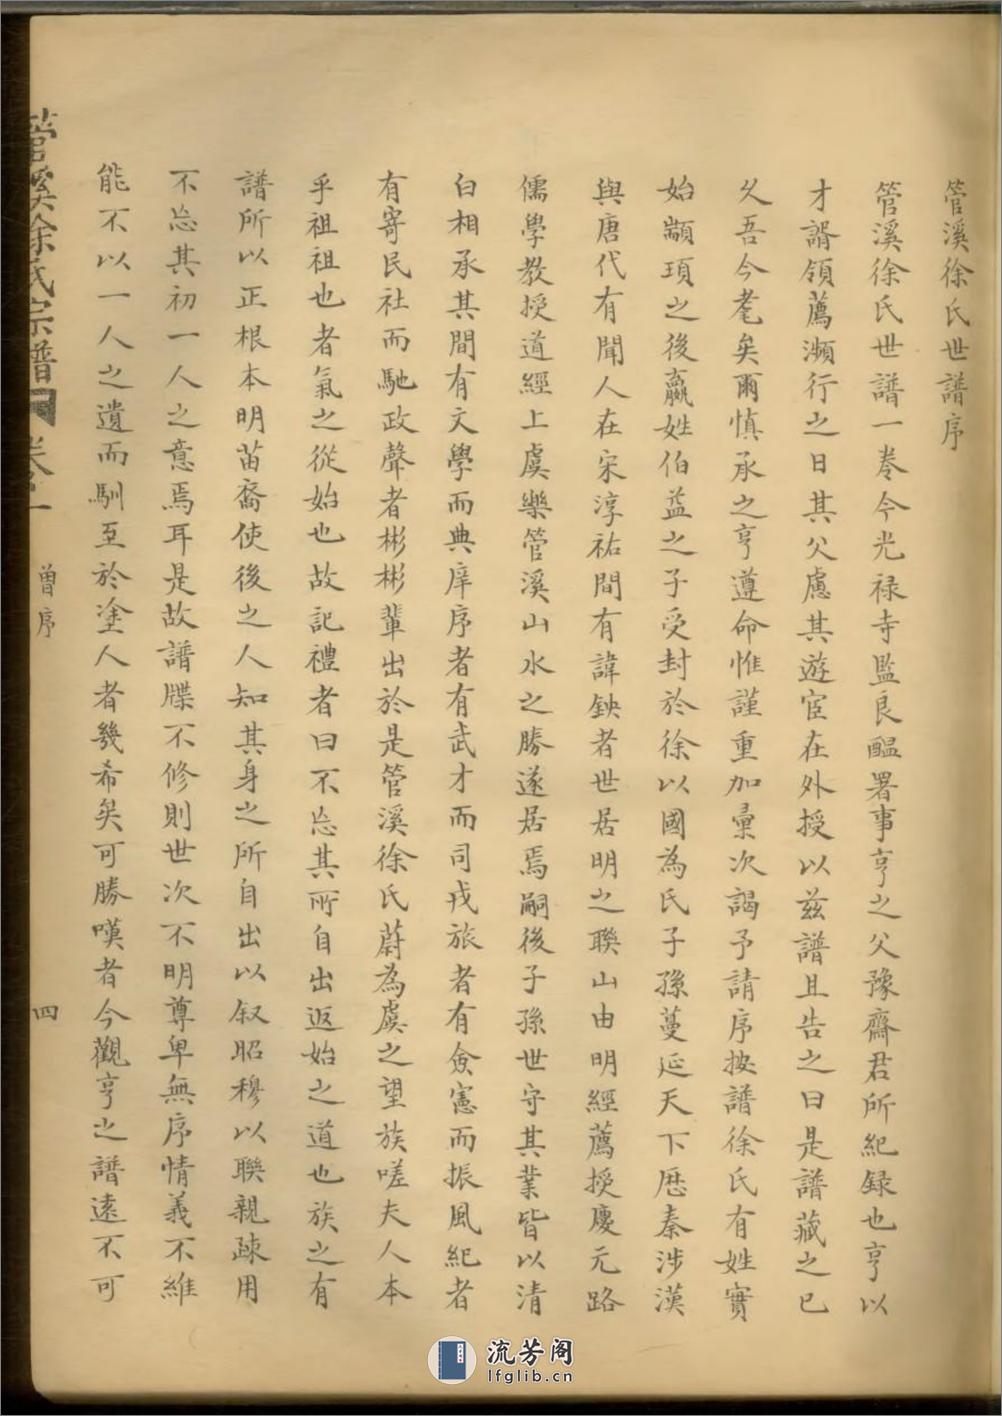 管溪徐氏世譜序
管溪徐氏世譜一卷今光禄寺監良醞署事亨之父豫齋君所紀録也亨以
才諝領薦瀕行之日其父慮其遊宦在外授以兹譜且告之曰是譜藏之已
久吾今耄矣爾慎承之亨遵命惟謹重加彙次謁予請序按譜徐氏有姓實
始顓頊之後嬴姓伯益之子受封於徐以國為氏子孫蔓延天下歷秦涉漢
與唐代有聞人在宋淳祐間有諱鉠者世居明之聯山由明經薦授慶元路
儒學教授道經上虞樂管溪山水之勝遂居焉嗣後子孫世守其業皆以清
白相承其間有文學而典庠序者有武才而司戎旅者有僉憲而振風紀者
有寄民社而馳政聲者彬彬輩出於是管溪徐氏蔚為虞之望族嗟夫人本
乎祖祖也者氣之從始也故記禮者曰不忘其所自出返始之道也族之有
譜所以正根本明苗裔使後之人知其身之所自出以叙昭穆以聯親疎用
不忘其初一人之意焉耳是故譜牒不修則世次不明尊卑無序情義不維
能不以一人之遺而馴至於塗人者幾希矣可勝嘆者今觀亨之譜遠不可
管溪徐氏宗譜 卷一 曾序 四
流芳阁
lfglib.cn